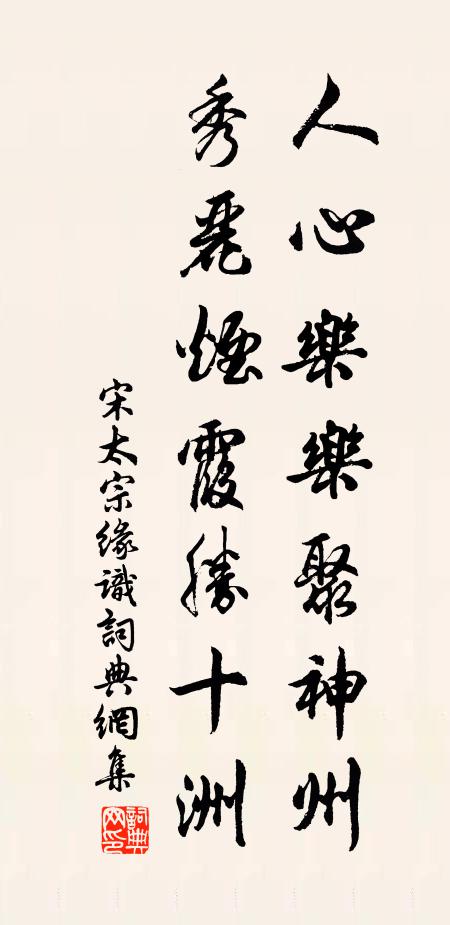 人心樂樂聚神州
秀麗煙霞勝十洲
宋太宗緣識詞典網集
詞典網印